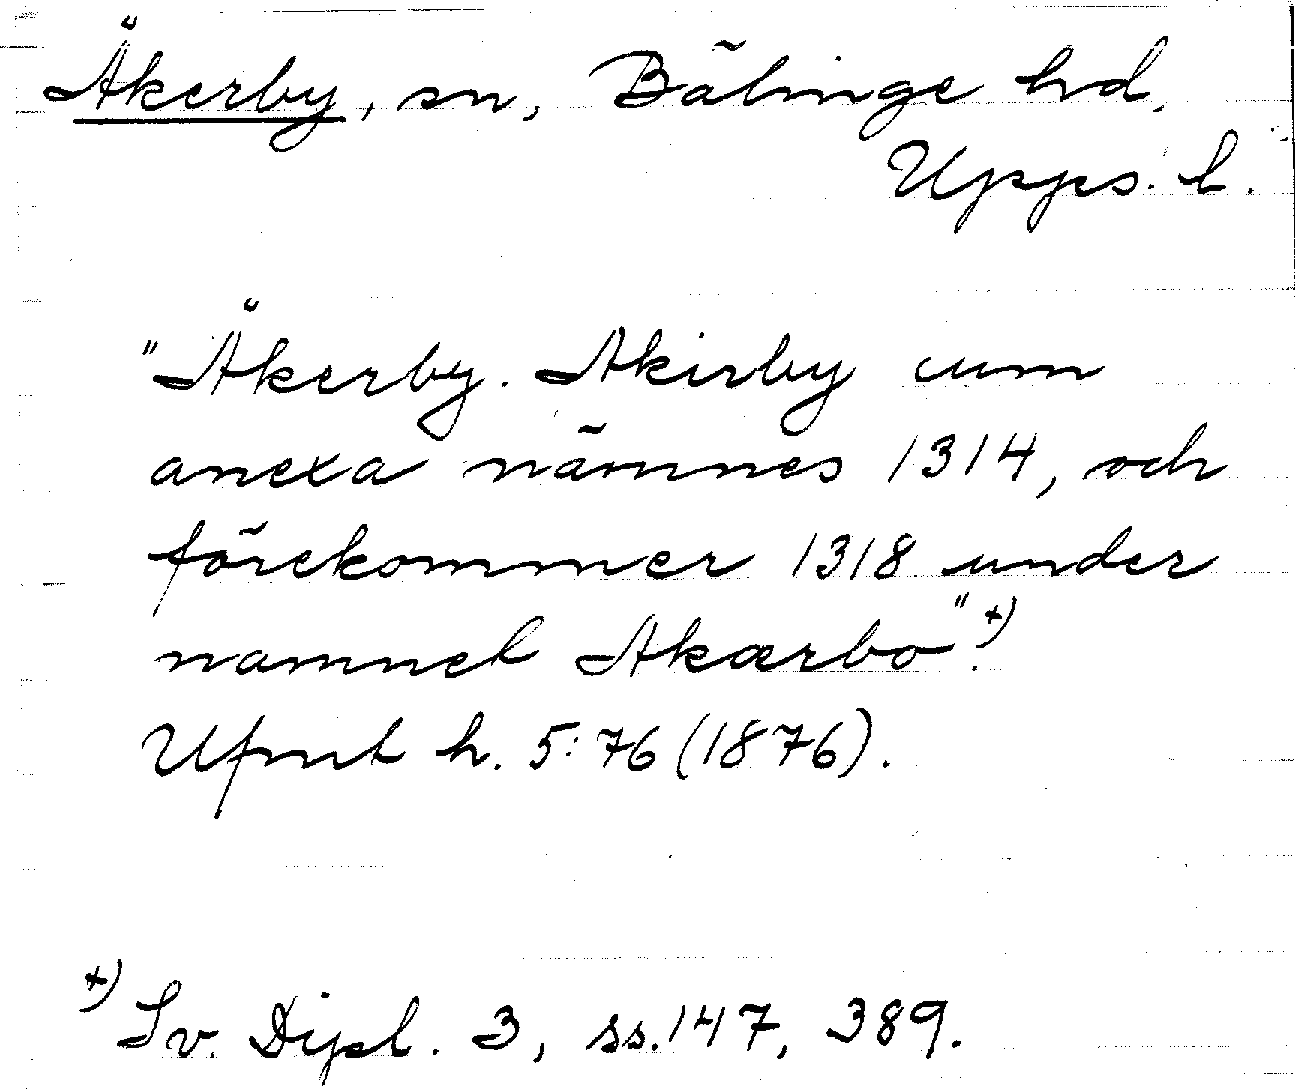 Åkerby, sn, Bälinge hd,
Upps. l.
"Åkerby. Akirby cum
anexa nämnes 1314, och
förekommer 1318 under
namnet Akærbo".+)
Ufmt h. 5:76 (1876).
+) Sv. Dipl. 3, ss. 147, 389.